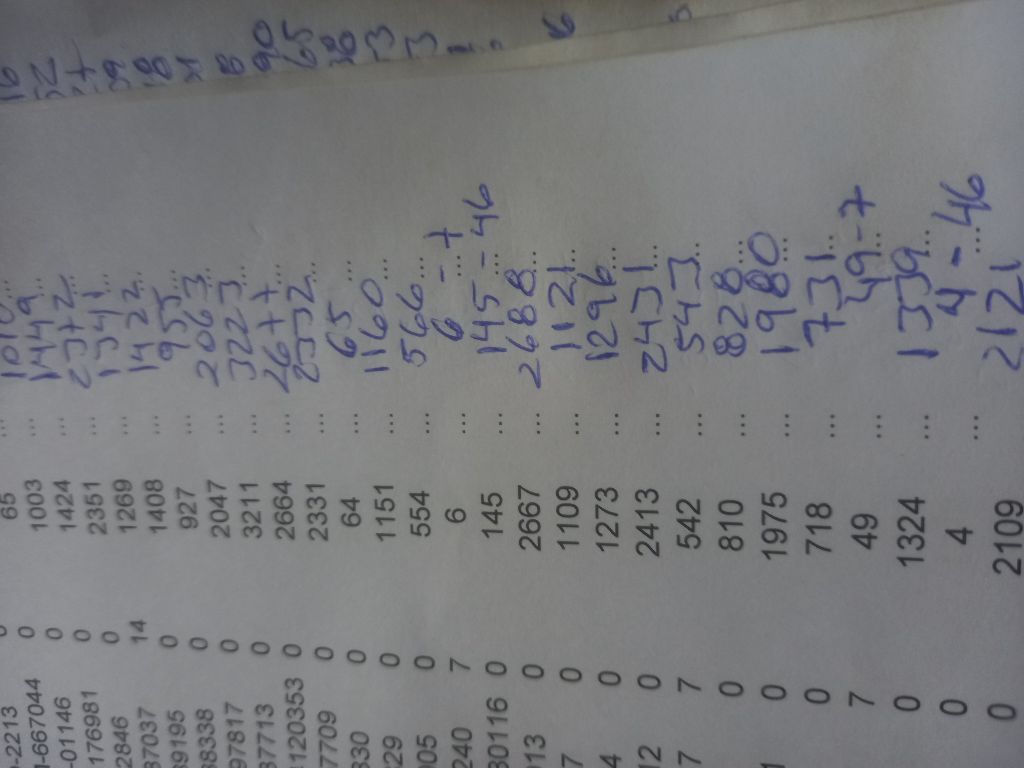 -667044 0 65 ...
-01146 0 1003 ... 1010 ...
1176981 0 1424 ... 1449 ...
2846 0 2351 ... 2372 ...
37037 14 1269 ... 1341 ...
39195 0 1408 ... 1422 ...
68338 0 927 ... 955 ...
97817 0 2047 ... 2063 ...
377713 0 3211 ... 3223 ...
4120353 0 2664 ... 2677 ...
7709 0 2331 ... 2332 ...
330 0 64 ... 65 ...
29 0 1151 ... 1160 ...
005 0 554 ... 566 ...
240 7 6 ... 6 - 7 ...
30116 0 145 ... 145 - 46 ...
013 0 2667 ... 2688 ...
7 0 1109 ... 1121 ...
4 0 1273 ... 1296 ...
12 0 2413 ... 2431 ...
7 7 542 ... 543 ...
0 810 ... 828 ...
1 0 1975 ... 1980 ...
0 718 ... 731 ...
7 49 ... 49 - 7 ...
0 1324 ... 1339 ...
0 4 ... 4 - 46 ...
0 2109 ... 2121